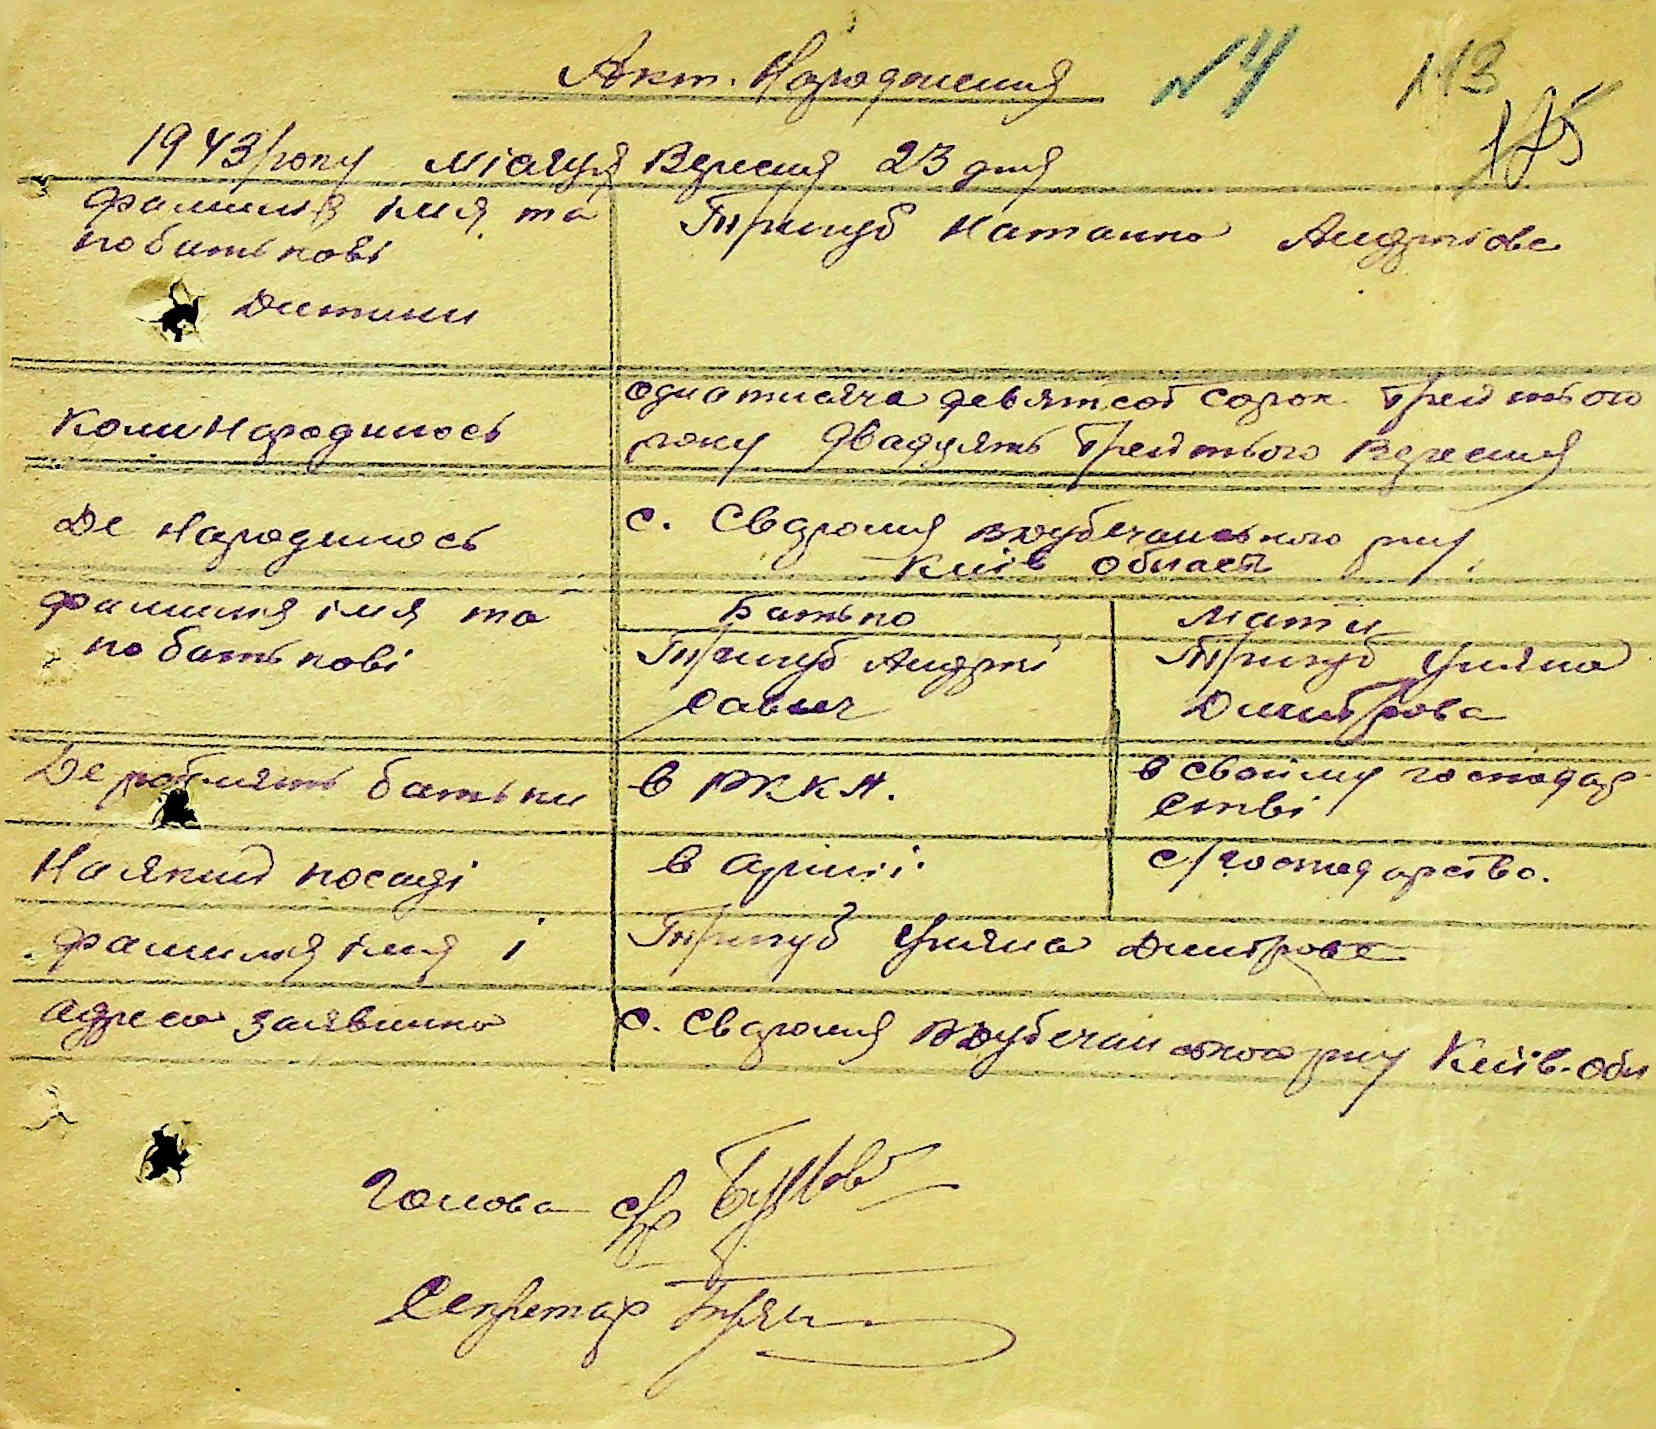 Акт. Народження №4 113
175
1943/року місяця Вересня 23 дня
Фамилия імя та
по батькові
Дитини
Тригуб Наталка Андріова
Коли Народилось
одна тисяча девятсот сорок трейтього
року двадцять трейтього Вересня
Де Народилось
с. Сведромля рну.
Київ область
Фамилия імя та
по батькові
Батько
Мати
Тригуб Андрій
Савич
Тригуб Уляна
Дмитрова
Де роблять батьки
в РККА.
в своїму господар
стві
На якій посаді
в армії.
с/господарство.
Фамилия імя і
Тригуб Уляна Дмитрова
адреса заявника
с. Сведромля рну Київ-обл
Голова с/р
Секретар